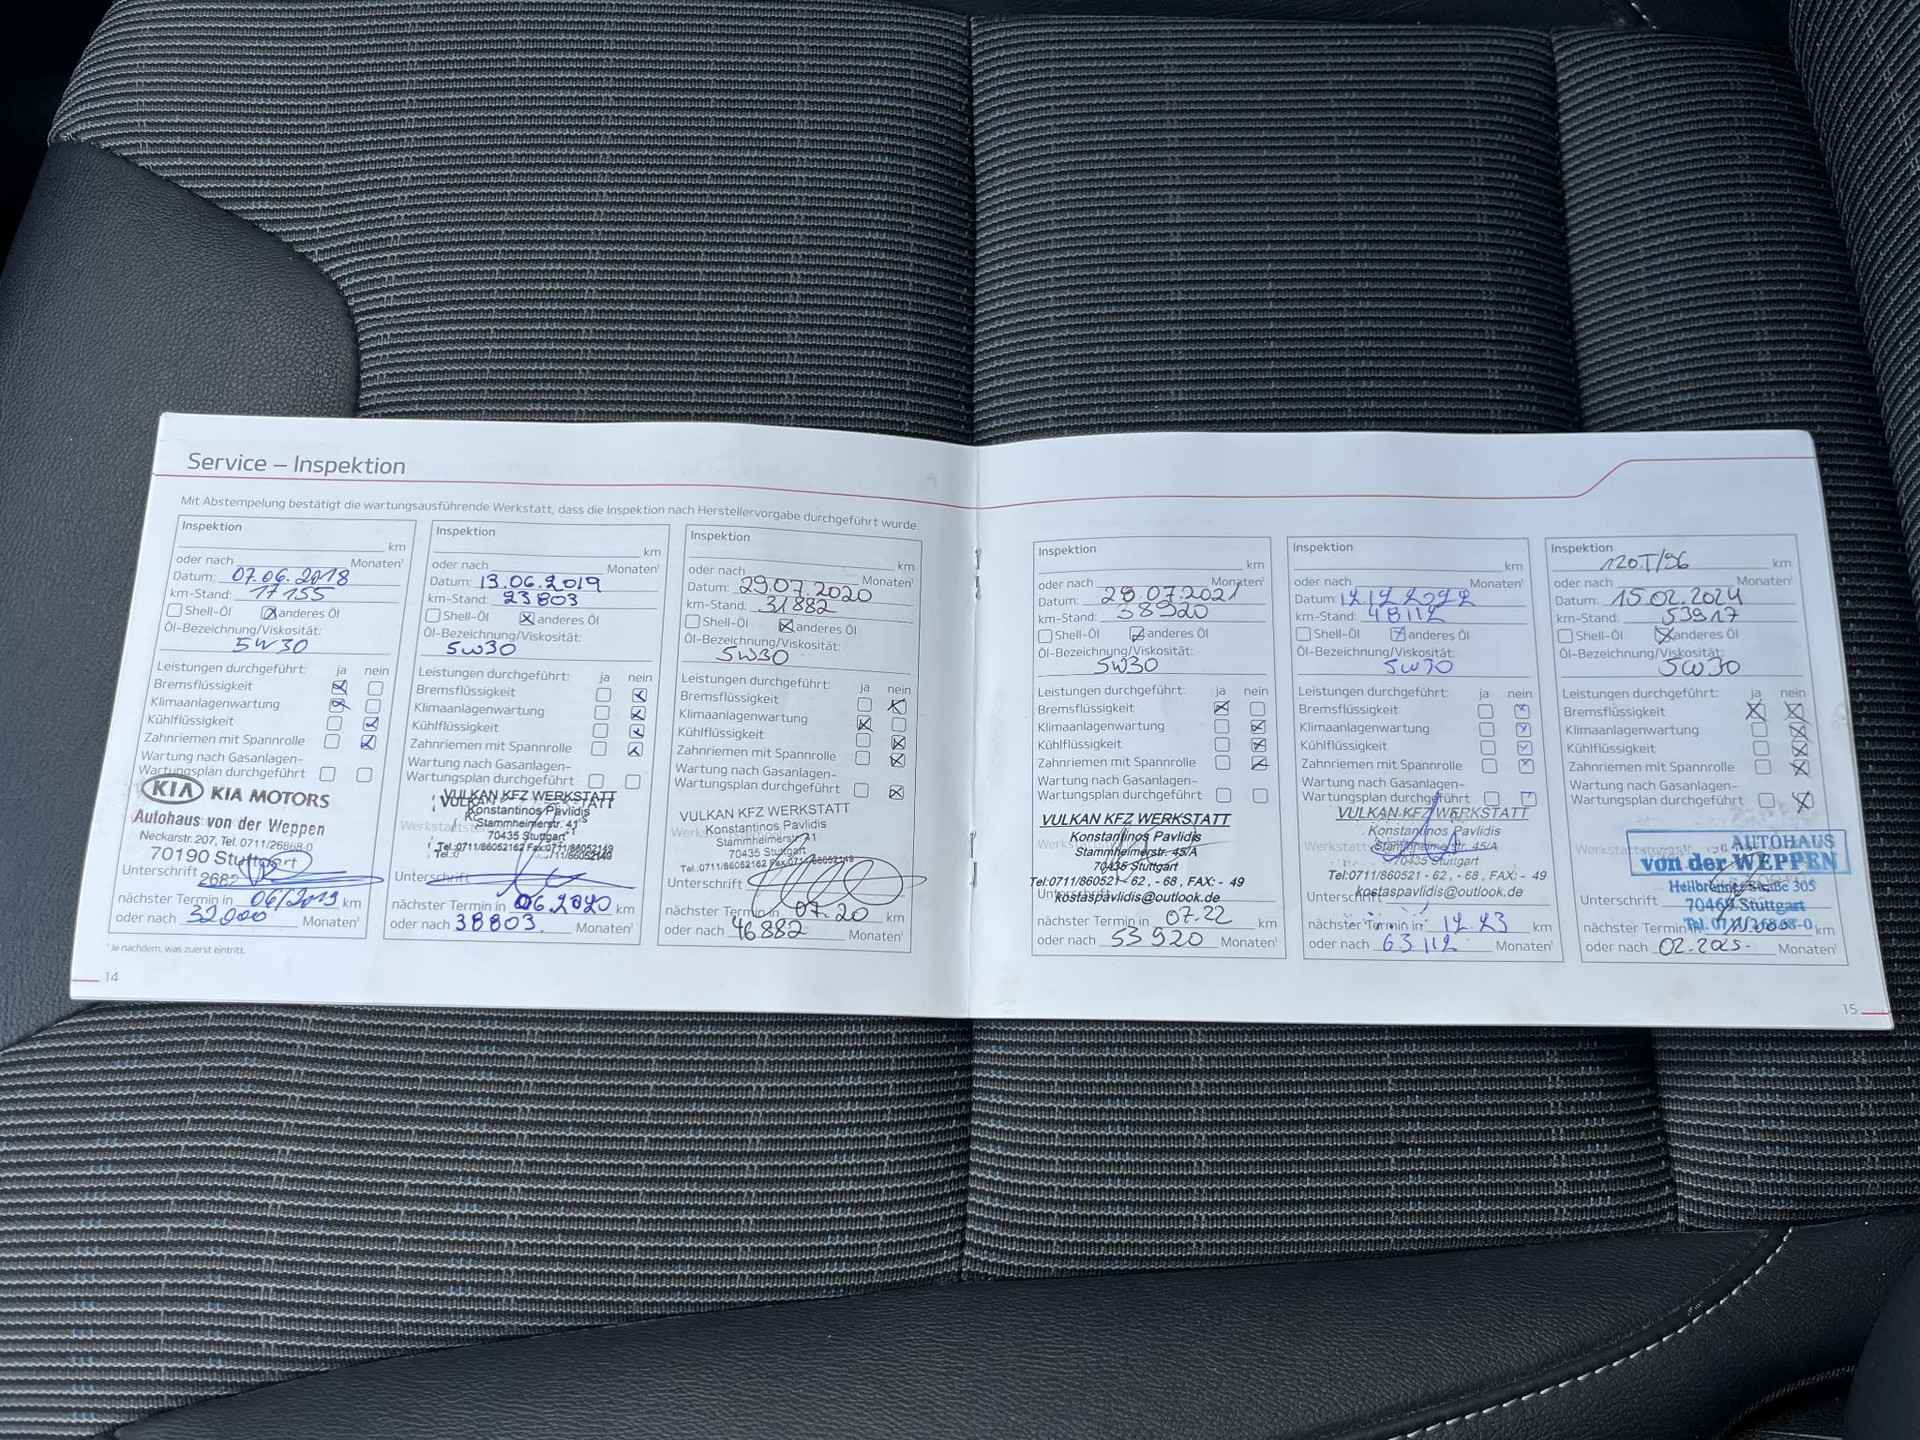 Service – Inspektion
Mit Abstempelung bestätigt die wartungsausführende Werkstatt, dass die Inspektion nach Herstellervorgabe durchgeführt wurde.
Inspektion
km
oder nach Monaten¹
Datum: 07.06.2018
km-Stand: 17155
Shell-Öl anderes Öl
Öl-Bezeichnung/Viskosität:
5W30
Leistungen durchgeführt: ja nein
Bremsflüssigkeit
Klimaanlagenwartung
Kühlflüssigkeit
Zahnriemen mit Spannrolle
Wartung nach Gasanlagen-
Wartungsplan durchgeführt
KIA KIA MOTORS
Autohaus von der Weppen
Neckarstr. 207, Tel. 0711/26868-0
70190 Stuttgart
Unterschrift
nächster Termin in 06/2019 km
oder nach 32000 Monaten¹
¹ Je nachdem, was zuerst eintritt.
14
Inspektion
km
oder nach Monaten¹
Datum: 13.06.2019
km-Stand: 23803
Shell-Öl anderes Öl
Öl-Bezeichnung/Viskosität:
5W30
Leistungen durchgeführt: ja nein
Bremsflüssigkeit
Klimaanlagenwartung
Kühlflüssigkeit
Zahnriemen mit Spannrolle
Wartung nach Gasanlagen-
Wartungsplan durchgeführt
VULKAN KFZ WERKSTATT
Konstantinos Pavlidis
Stammheimerstr. 41
70435 Stuttgart
Tel.:0711/86052162 Fax:0711/86052149
Unterschrift
nächster Termin in 06.2020 km
oder nach 38803. Monaten¹
Inspektion
km
oder nach Monaten¹
Datum: 29.07.2020
km-Stand: 31882
Shell-Öl anderes Öl
Öl-Bezeichnung/Viskosität:
5W30
Leistungen durchgeführt: ja nein
Bremsflüssigkeit
Klimaanlagenwartung
Kühlflüssigkeit
Zahnriemen mit Spannrolle
Wartung nach Gasanlagen-
Wartungsplan durchgeführt
VULKAN KFZ WERKSTATT
Konstantinos Pavlidis
Stammheimerstr. 41
70435 Stuttgart
Tel.:0711/86052162 Fax:0711/86052149
Unterschrift
nächster Termin in 07.20 km
oder nach 46882 Monaten¹
Inspektion
km
oder nach Monaten¹
Datum: 28.07.2021
km-Stand: 38920
Shell-Öl anderes Öl
Öl-Bezeichnung/Viskosität:
5W30
Leistungen durchgeführt: ja nein
Bremsflüssigkeit
Klimaanlagenwartung
Kühlflüssigkeit
Zahnriemen mit Spannrolle
Wartung nach Gasanlagen-
Wartungsplan durchgeführt
VULKAN KFZ WERKSTATT
Konstantinos Pavlidis
Stammheimerstr. 45/A
70435 Stuttgart
Tel:0711/860521 - 62 , - 68 , FAX: - 49
kostaspavlidis@outlook.de
nächster Termin in 07.22 km
oder nach 53920 Monaten¹
Inspektion
km
oder nach Monaten¹
Datum: 12.12.2022
km-Stand: 48112
Shell-Öl anderes Öl
Öl-Bezeichnung/Viskosität:
5W30
Leistungen durchgeführt: ja nein
Bremsflüssigkeit
Klimaanlagenwartung
Kühlflüssigkeit
Zahnriemen mit Spannrolle
Wartung nach Gasanlagen-
Wartungsplan durchgeführt
VULKAN KFZ WERKSTATT
Konstantinos Pavlidis
Stammheimerstr. 45/A
70435 Stuttgart
Tel:0711/860521 - 62 , - 68 , FAX: - 49
kostaspavlidis@outlook.de
nächster Termin in 12.23 km
oder nach 63112 Monaten¹
Inspektion
120T/96 km
oder nach Monaten¹
Datum: 15.02.2024
km-Stand: 53917
Shell-Öl anderes Öl
Öl-Bezeichnung/Viskosität:
5W30
Leistungen durchgeführt: ja nein
Bremsflüssigkeit
Klimaanlagenwartung
Kühlflüssigkeit
Zahnriemen mit Spannrolle
Wartung nach Gasanlagen-
Wartungsplan durchgeführt
AUTOHAUS
von der WEPPEN
Heilbronner Straße 305
70469 Stuttgart
Tel. 0711/26868-0
Unterschrift
nächster Termin in km
oder nach 02.2025. Monaten¹
15